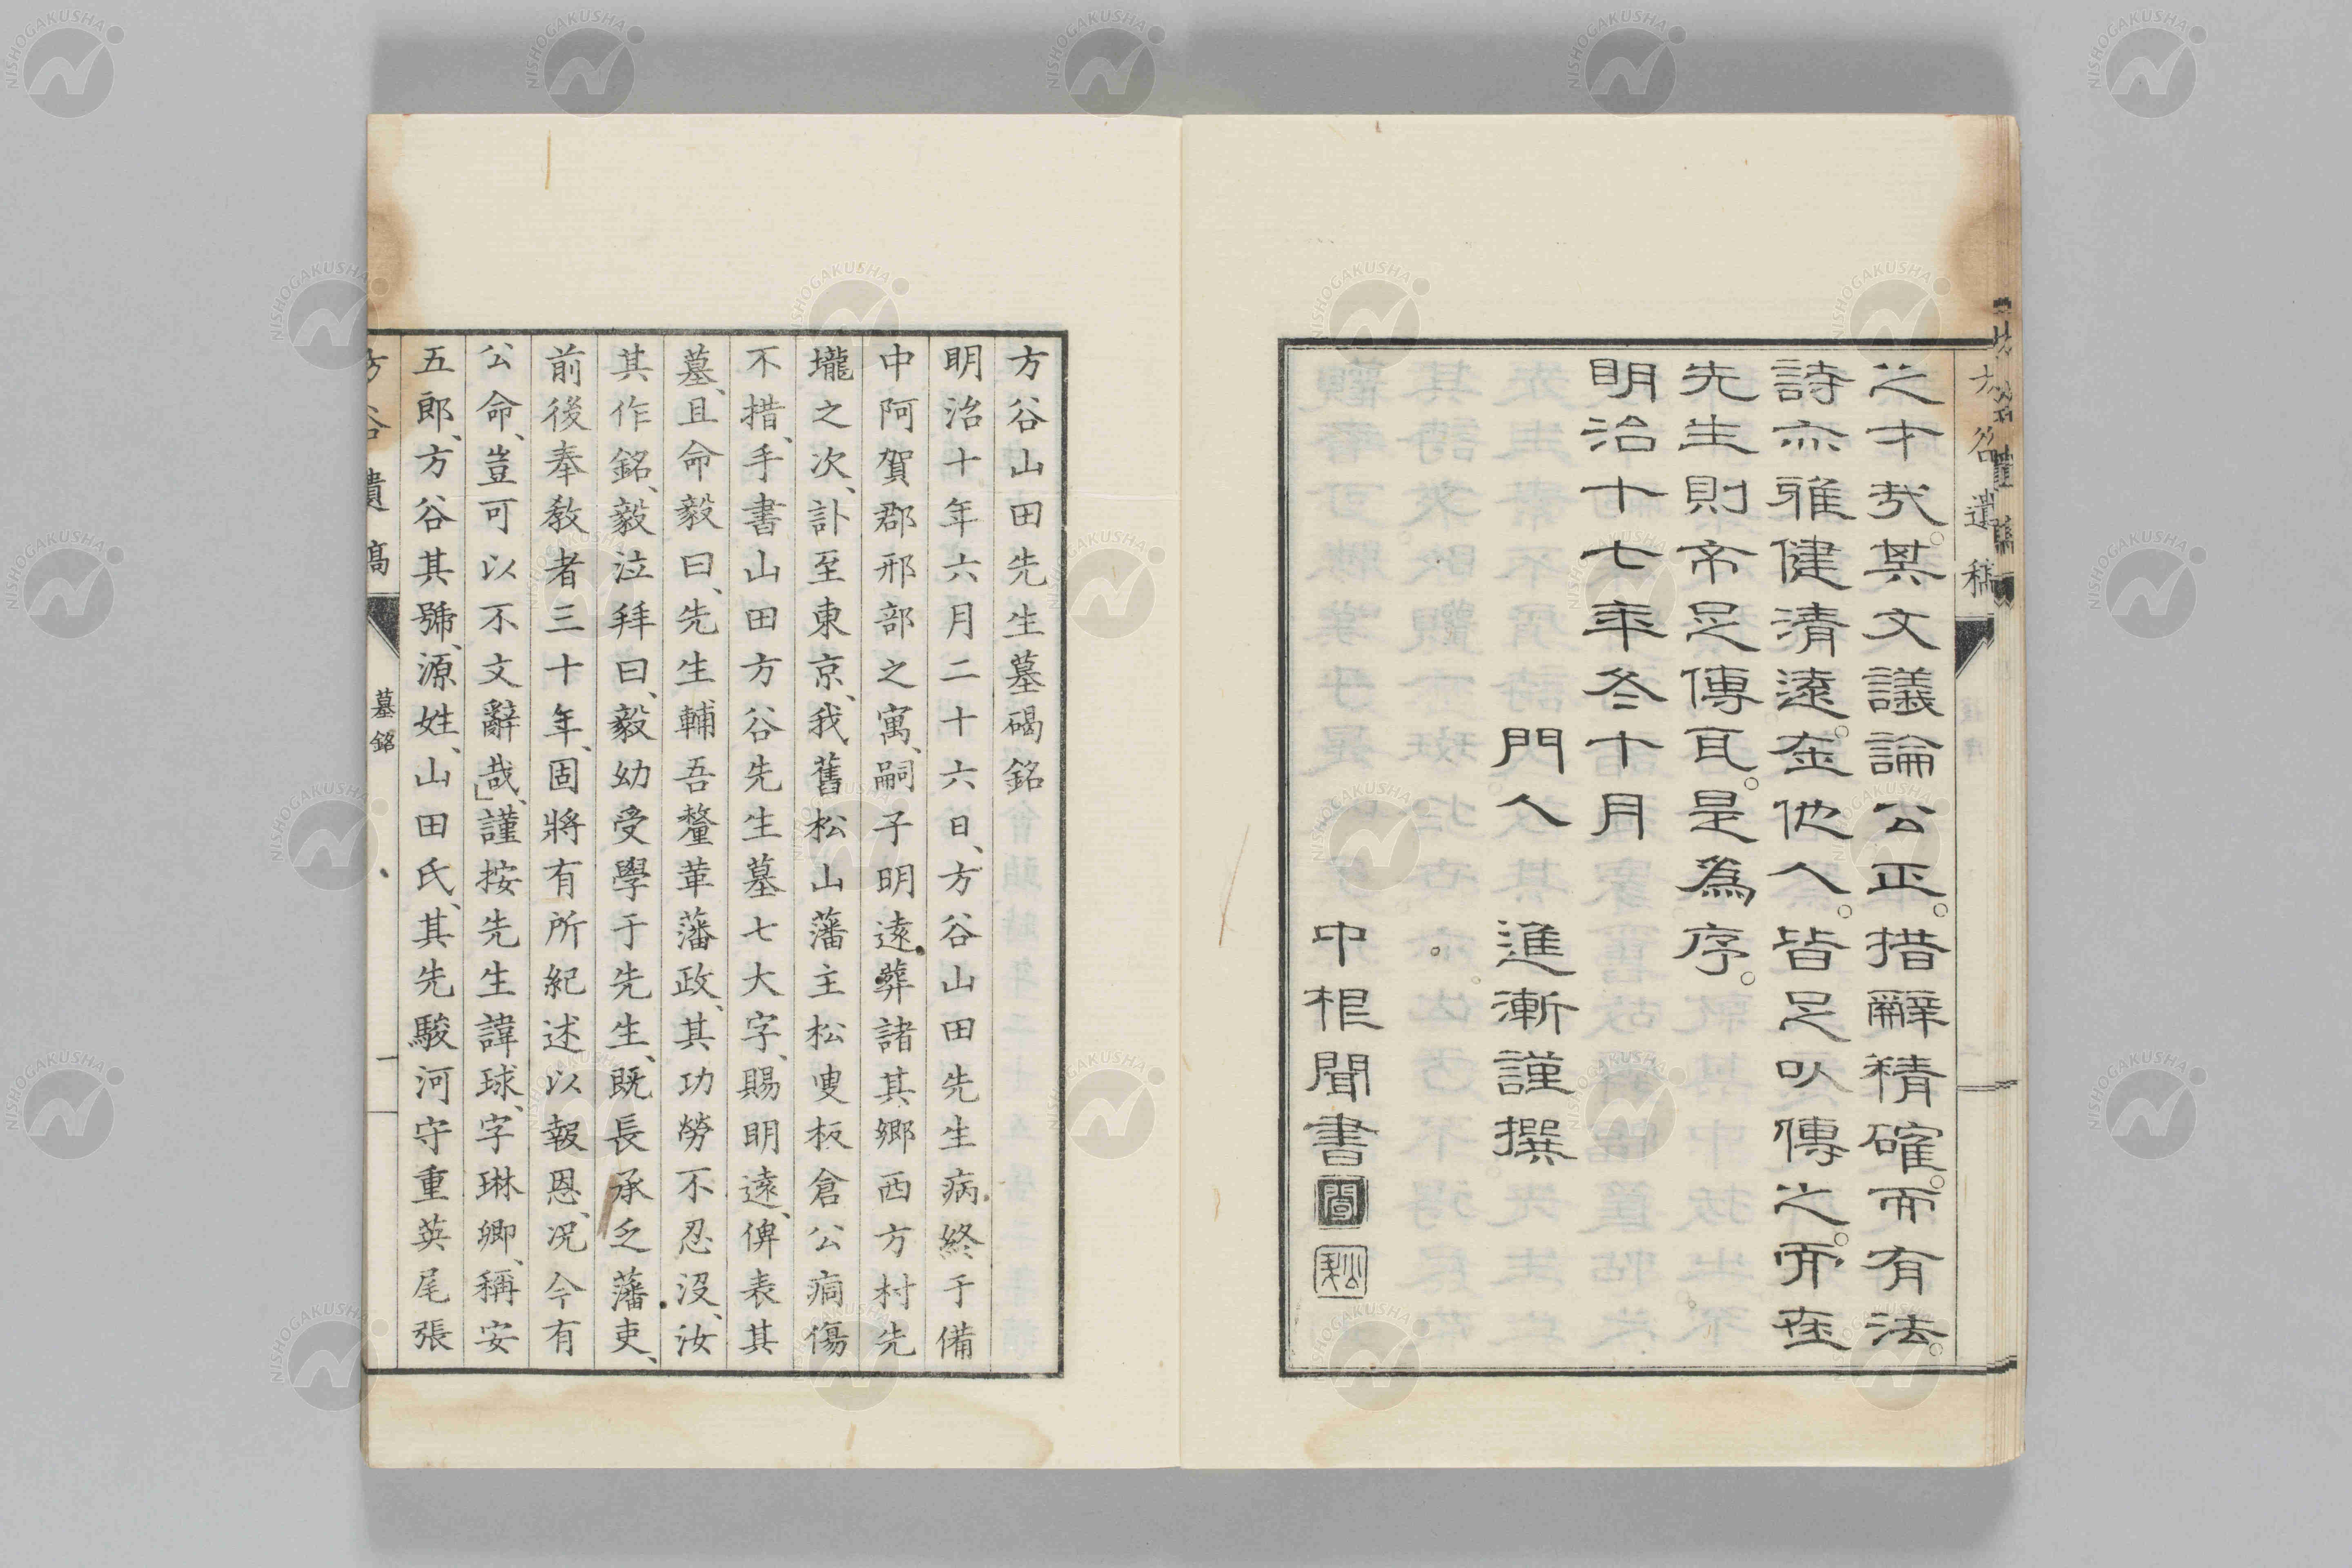 方谷遺稿
之才哉。其文議論公正。措辭精確。而有法。
詩亦雅健清遠。在他人。皆足以傳之。而在
先生則帀足傳耳。是為序。
明治十七年冬十月
門人 進漸謹撰
中根聞書
方谷山田先生墓碣銘
明治十年六月二十六日、方谷山田先生病終于備
中阿賀郡邢部之寓、嗣子明遠葬諸其鄉西方村先
壠之次、訃至東京、我舊松山藩主松叟板倉公痌傷
不措、手書山田方谷先生墓七大字、賜明遠、俾表其
墓、且命毅曰、先生輔吾釐革藩政、其功勞不忍沒、汝
其作銘、毅泣拜曰、毅幼受學于先生、既長承乏藩吏、
前後奉敎者三十年、固將有所紀述以報恩、况今有
公命、豈可以不文辭哉、」謹按先生諱球、字琳卿、稱安
五郎、方谷其號、源姓、山田氏、其先駿河守重英尾張
方谷遺稿
墓銘
一
NISHOGAKUSHA